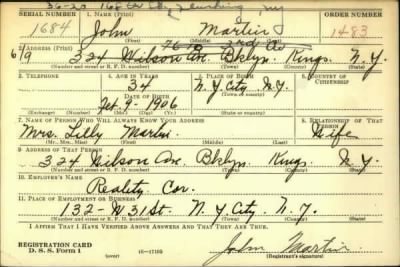 36-20 168 St Flushing NY
SERIAL NUMBER 1. NAME (Print) ORDER NUMBER
1684 John Martin 1483
(First) (Middle) (Last)
2. ADDRESS (Print)
324 Wilson Ave. Bklyn. Kings. N.Y.
(Number and street or R. F. D. number) (Town) (County) (State)
3. TELEPHONE 4. AGE IN YEARS 5. PLACE OF BIRTH 6. COUNTRY OF CITIZENSHIP
34 N.Y City
DATE OF BIRTH (Town or county)
Feb. 9 - 1906 N.Y.
(Exchange) (Number) (Mo.) (Day) (Yr.) (State or country)
7. NAME OF PERSON WHO WILL ALWAYS KNOW YOUR ADDRESS 8. RELATIONSHIP OF THAT PERSON
Mrs. Lilly Martin Wife
(Mr., Mrs., Miss) (First) (Middle) (Last)
9. ADDRESS OF THAT PERSON
324 Wilson Ave. Bklyn. Kings. N.Y.
(Number and street or R. F. D. number) (Town) (County) (State)
10. EMPLOYER'S NAME
Reality Cor.
11. PLACE OF EMPLOYMENT OR BUSINESS
132 - W 31 St. N.Y City. N.Y.
(Number and street or R. F. D. number) (Town) (County) (State)
I AFFIRM THAT I HAVE VERIFIED ABOVE ANSWERS AND THAT THEY ARE TRUE.
REGISTRATION CARD
D. S. S. Form 1 (over) John Martin
(Registrant's signature)